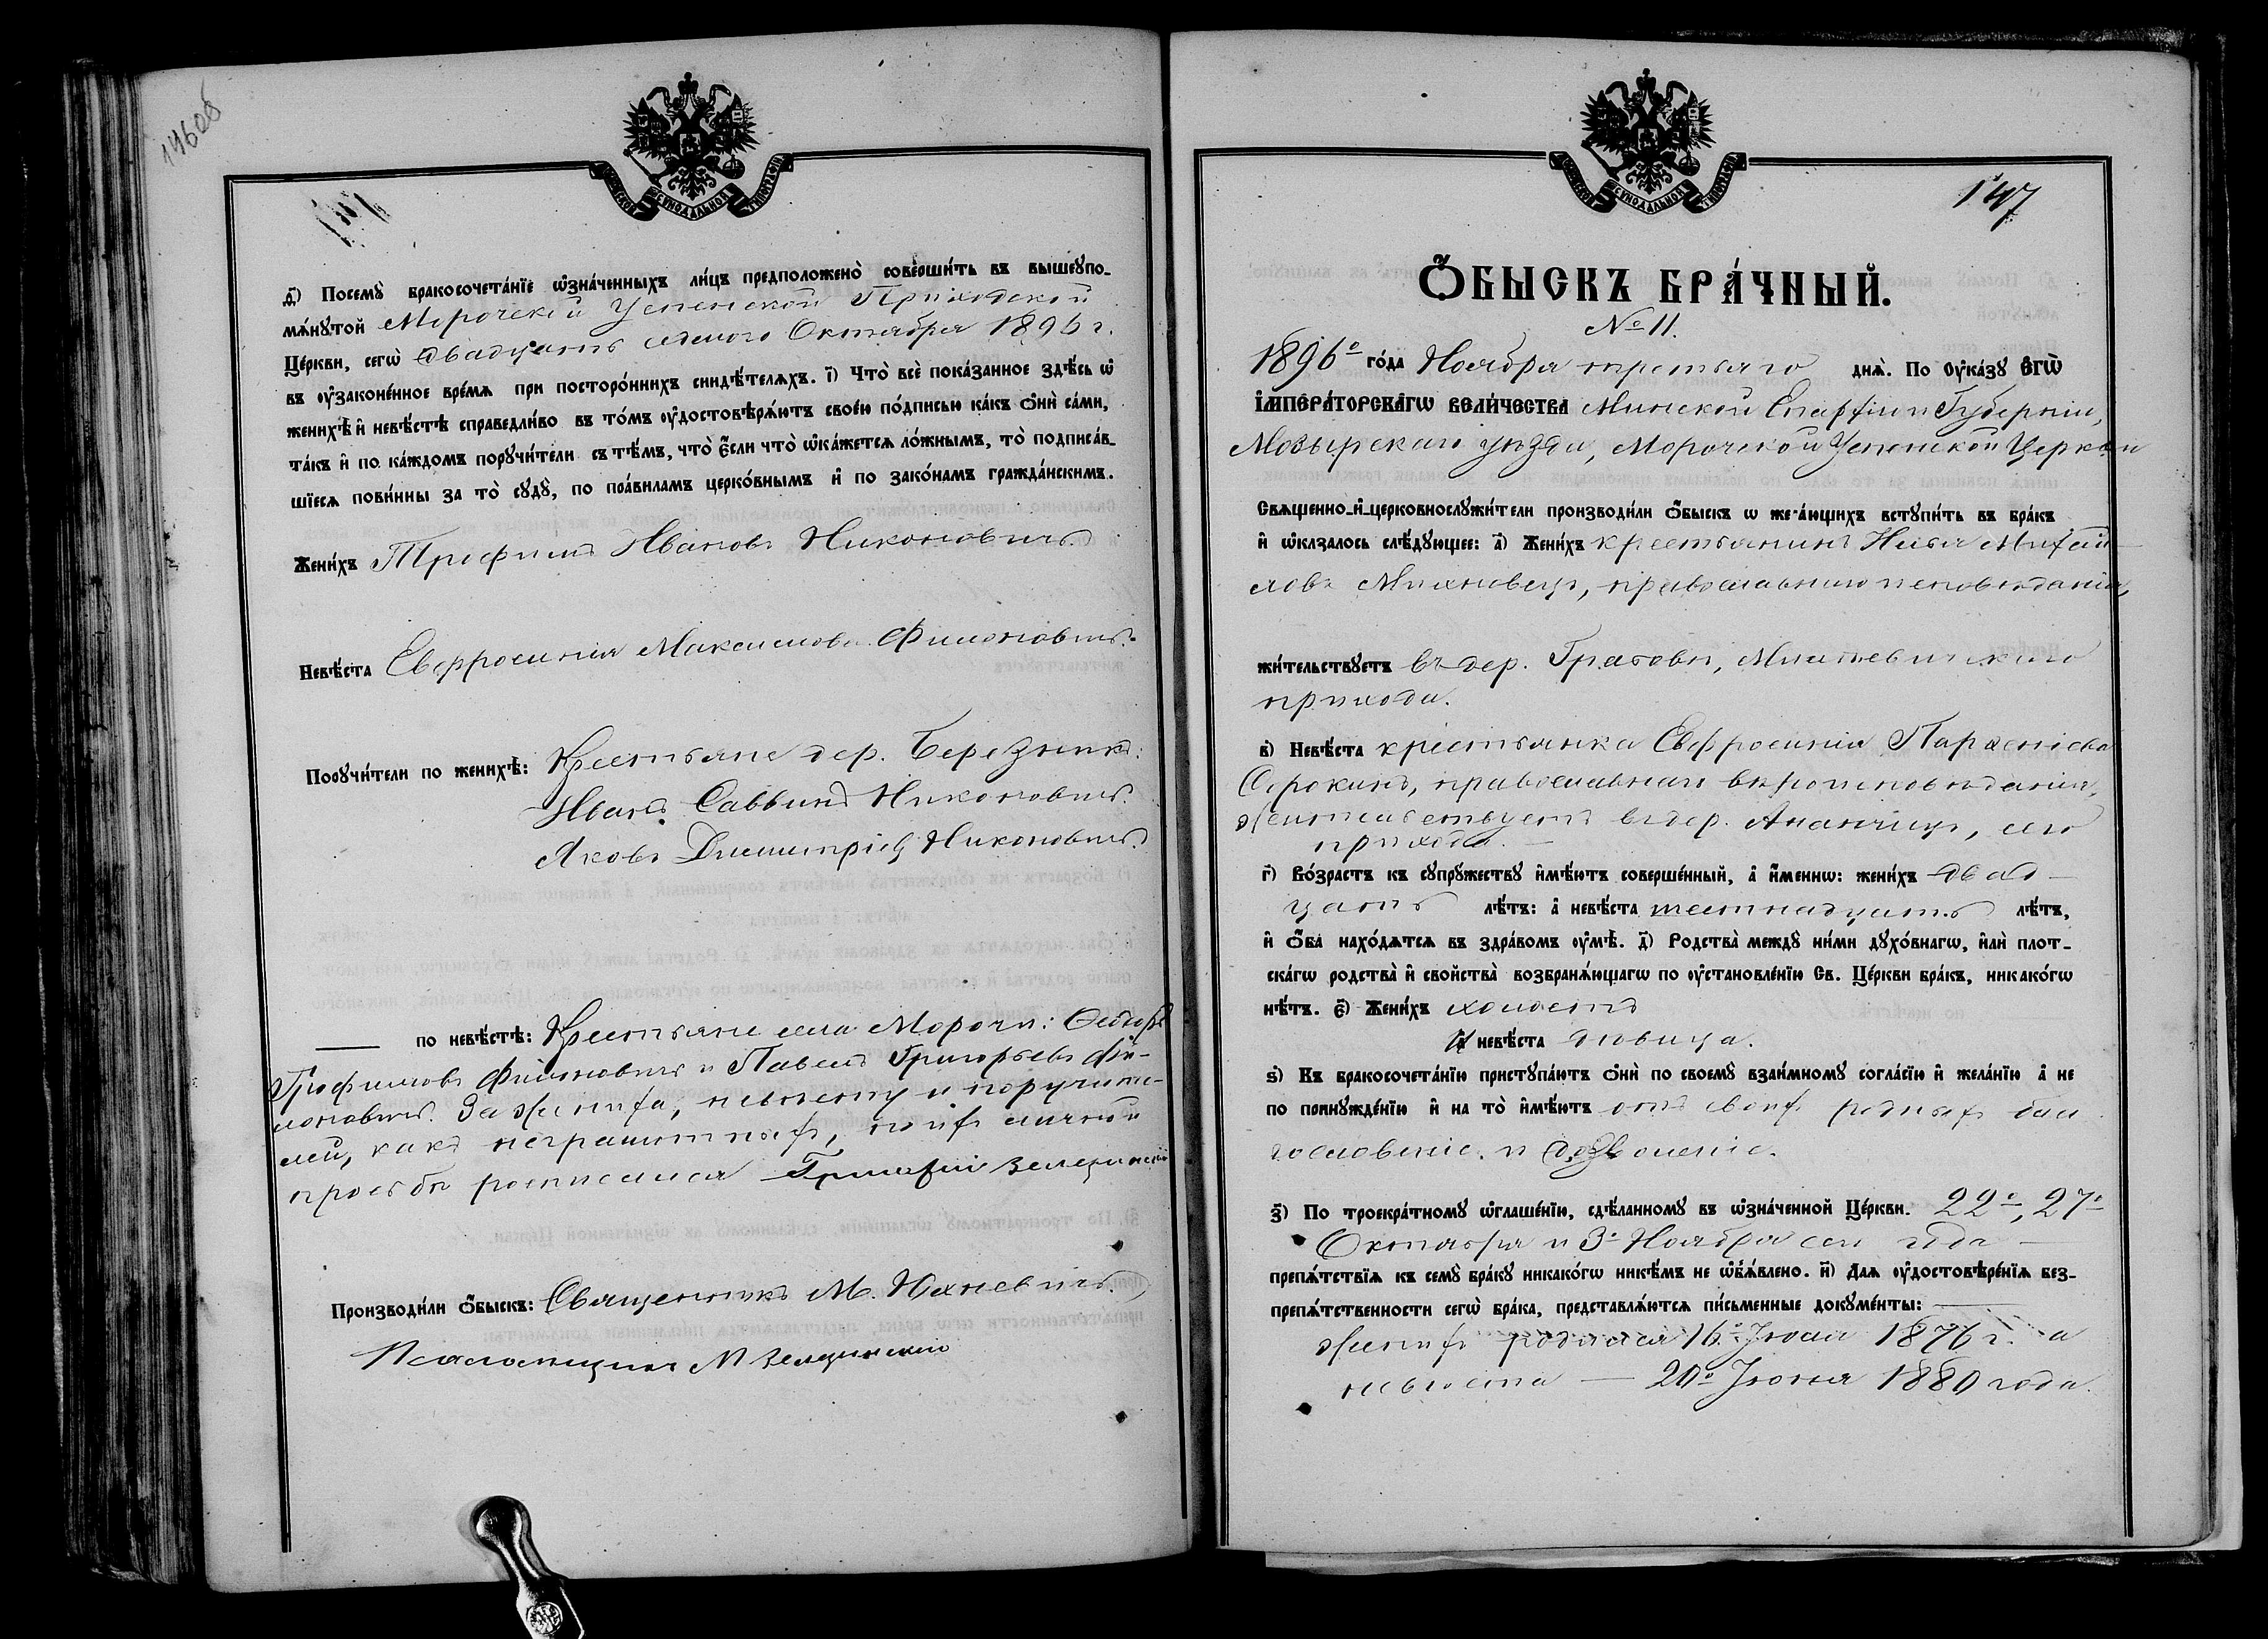 146об
МОСКОВСКОЙ СѴНОДАЛЬНОЙ ТИПОГРАФІИ
д҃) Посемꙋ̀ бракосочета́нїе ѡ҆зна́ченныхъ ли́цъ предположено̀ соверши́ть въ вышеꙋпо-
мѧ́нꙋтой Морочской Успенской Приходской
Це́ркви, сегѡ̀ двадцать седьмого Октября 1896 г.
въ ѹ҆зако́ненное вре́мѧ при посторо́ннихъ свидѣ́телѧхъ. і҃) Что̀ всѐ пока́занное здѣ́сь ѡ҆
женихѣ̀ и҆ невѣ́стѣ справедли́во въ то́мъ ѹ҆достовѣрѧ́ютъ свое́ю по́дписью ка́къ ѻ҆нѝ са́ми,
та́къ и҆ по ка́ждомъ порꙋчи́тели съ тѣ́мъ, что̀ є҆́сли что̀ ѡ҆ка́жетсѧ ло́жнымъ, то̀ подписа́в-
шїесѧ пови́нны за то̀ сꙋдꙋ̀, по пра́виламъ церко́внымъ и҆ по зако́намъ гражда́нскимъ.
Жени́хъ Трофимъ Ивановъ Никоновичъ.
Невѣ́ста Евфросинія Максимова Филоновичъ.
Порꙋчи́тели по женихѣ̀: Крестьяне дер. Березники:
Иванъ Саввинъ Никоновичъ.
Яковъ Димитріевъ Никоновичъ.
по невѣ́стѣ: Крестьяне села Морочи: Ѳедоръ
Трофимовъ Филоновичъ и Павелъ Григорьевъ Фи-
лоновичъ. За жениха, невѣсту и поручите-
лей, какъ неграмотныхъ, по ихъ личной
просьбѣ росписался Григорій Зелезинскій
Производи́ли ѻ҆́быскъ: Священникъ М. Юхневичъ.
Псаломщикъ М Зелезинскій
МОСКОВСКОЙ СѴНОДАЛЬНОЙ ТИПОГРАФІИ
147
Ѻ҆́БЫСКЪ БРА́ЧНЫЙ.
№ 11.
1896º го́да Ноября третьяго днѧ̀. По ᲂу҆ка́зꙋ Є҆ГѠ̀
І҆МПЕРА́ТОРСКАГѠ ВЕЛИ́ЧЕСТВА Минской Епархіи и Губерніи,
Мозырскаго уѣзда, Морочской Успенской Церкви
Свѧщенно-и҆-церковнослꙋжи́тели производи́ли ѻ҆́быскъ ѡ жела́ющихъ встꙋпи́ть въ бра́къ
и҆ ѡ҆каза́лось слѣ́дꙋющее: а҃) Жени́хъ крестьянинъ Илья Михай-
ловъ Михновецъ, православнаго исповѣданія,
жи́тельствꙋетъ въ дер. Граховѣ, приходa.
в҃) Невѣ́ста крестьянка Евфросинія Парѳеніева
Сорокинъ, православнаго вѣроисповѣданія,
жительствуетъ въ дер. Ананчицы, сего
прихода.
г҃) Во́зрастъ къ сꙋпрꙋ́жествꙋ и҆мѣ́ютъ соверше́нный, а҆ и҆́менно: жени́хъ двад-
цать лѣ́тъ: а҆ невѣ́ста шестнадцать лѣ́тъ,
и҆ ѻ҆́ба нахо́дѧтсѧ въ здра́вомъ ѹ҆мѣ̀. д҃) Родства̀ междꙋ̀ ни́ми дꙋхо́внагѡ, и҆лѝ плот-
ска́гѡ родства̀ и҆ свойства̀ возбранѧ́ющагѡ по ѹ҆становле́нїю Св. Це́ркви бра́къ, никако́гѡ
нѣ́тъ. є҃) Жени́хъ холостъ
а҆ невѣ́ста дѣвица.
ѕ҃) Къ бракосочета́нїю пристꙋпа́ютъ ѻ҆нѝ по своемꙋ̀ взаи́мномꙋ согла́сїю и҆ жела́нїю а҆ не
по принꙋжде́нїю и҆ на то̀ и҆мѣ́ютъ отъ своихъ родныхъ бла-
гословеніе и дозволеніе.
з҃) По троекра́тномꙋ ѡ҆глаше́нїю, сдѣ́ланномꙋ въ ѡ҆зна́ченной Це́ркви. 22º, 27º
Октября и 3º Ноября сего года
препѧ́тствїѧ къ семꙋ̀ бра́кꙋ никако́гѡ никѣ́мъ не ѡ҆б̾ѧ́влено. и҃) Длѧ ѹ҆достовѣре́нїѧ без-
препѧ́тственности сегѡ̀ бра́ка, представлѧ́ютсѧ пи́сьменные докꙋме́нты:
женихъ родился 16º Іюля 1876 г. а
невѣста — 20º Іюня 1880 года.